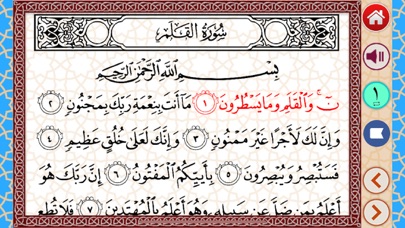 سُورَةُ القَلَمِ
بِسْمِ اللَّهِ الرَّحْمَٰنِ الرَّحِيمِ
نٓ ۚ وَالْقَلَمِ وَمَا يَسْطُرُونَ ١ مَا أَنتَ بِنِعْمَةِ رَبِّكَ بِمَجْنُونٍ ٢
وَإِنَّ لَكَ لَأَجْرًا غَيْرَ مَمْنُونٍ ٣ وَإِنَّكَ لَعَلَىٰ خُلُقٍ عَظِيمٍ ٤
فَسَتُبْصِرُ وَيُبْصِرُونَ ٥ بِأَييِّكُمُ الْمَفْتُونُ ٦ إِنَّ رَبَّكَ هُوَ
أَعْلَمُ بِمَن ضَلَّ عَن سَبِيلِهِ وَهُوَ أَعْلَمُ بِالْمُهْتَدِينَ ٧ فَلَا تُطِعِ
١